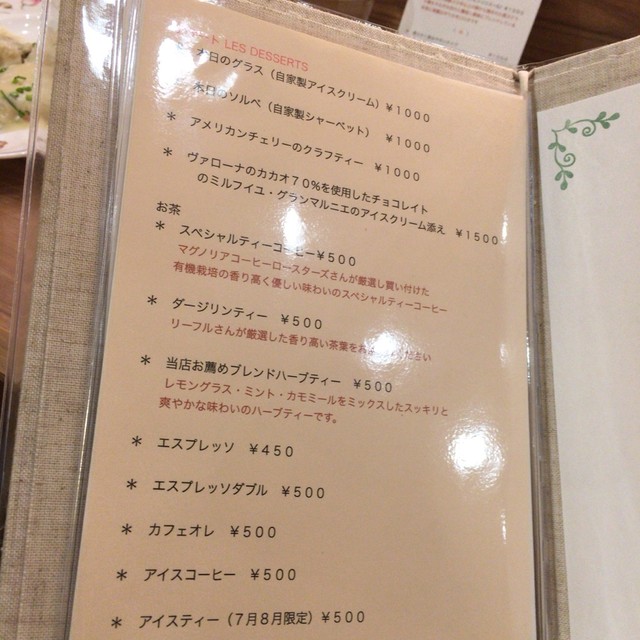 ート LES DESSERTS
本日のグラス（自家製アイスクリーム）￥1000
本日のソルベ（自家製シャーベット） ￥1000
＊ アメリカンチェリーのクラフティー ￥1000
＊ ヴァローナのカカオ７０％を使用したチョコレイト
のミルフイユ・グランマルニエのアイスクリーム添え ￥1500
お茶
＊ スペシャルティーコーヒー￥500
マグノリアコーヒーロースターズさんが厳選し買い付けた
有機栽培の香り高く優しい味わいのスペシャルティーコーヒー
＊ ダージリンティー ￥500
リーフルさんが厳選した香り高い茶葉を
＊ 当店お薦めブレンドハーブティー ￥500
レモングラス・ミント・カモミールをミックスしたスッキリと
爽やかな味わいのハーブティーです。
＊ エスプレッソ ￥450
＊ エスプレッソダブル ￥500
＊ カフェオレ ￥500
＊ アイスコーヒー ￥500
＊ アイスティー（7月8月限定）￥500